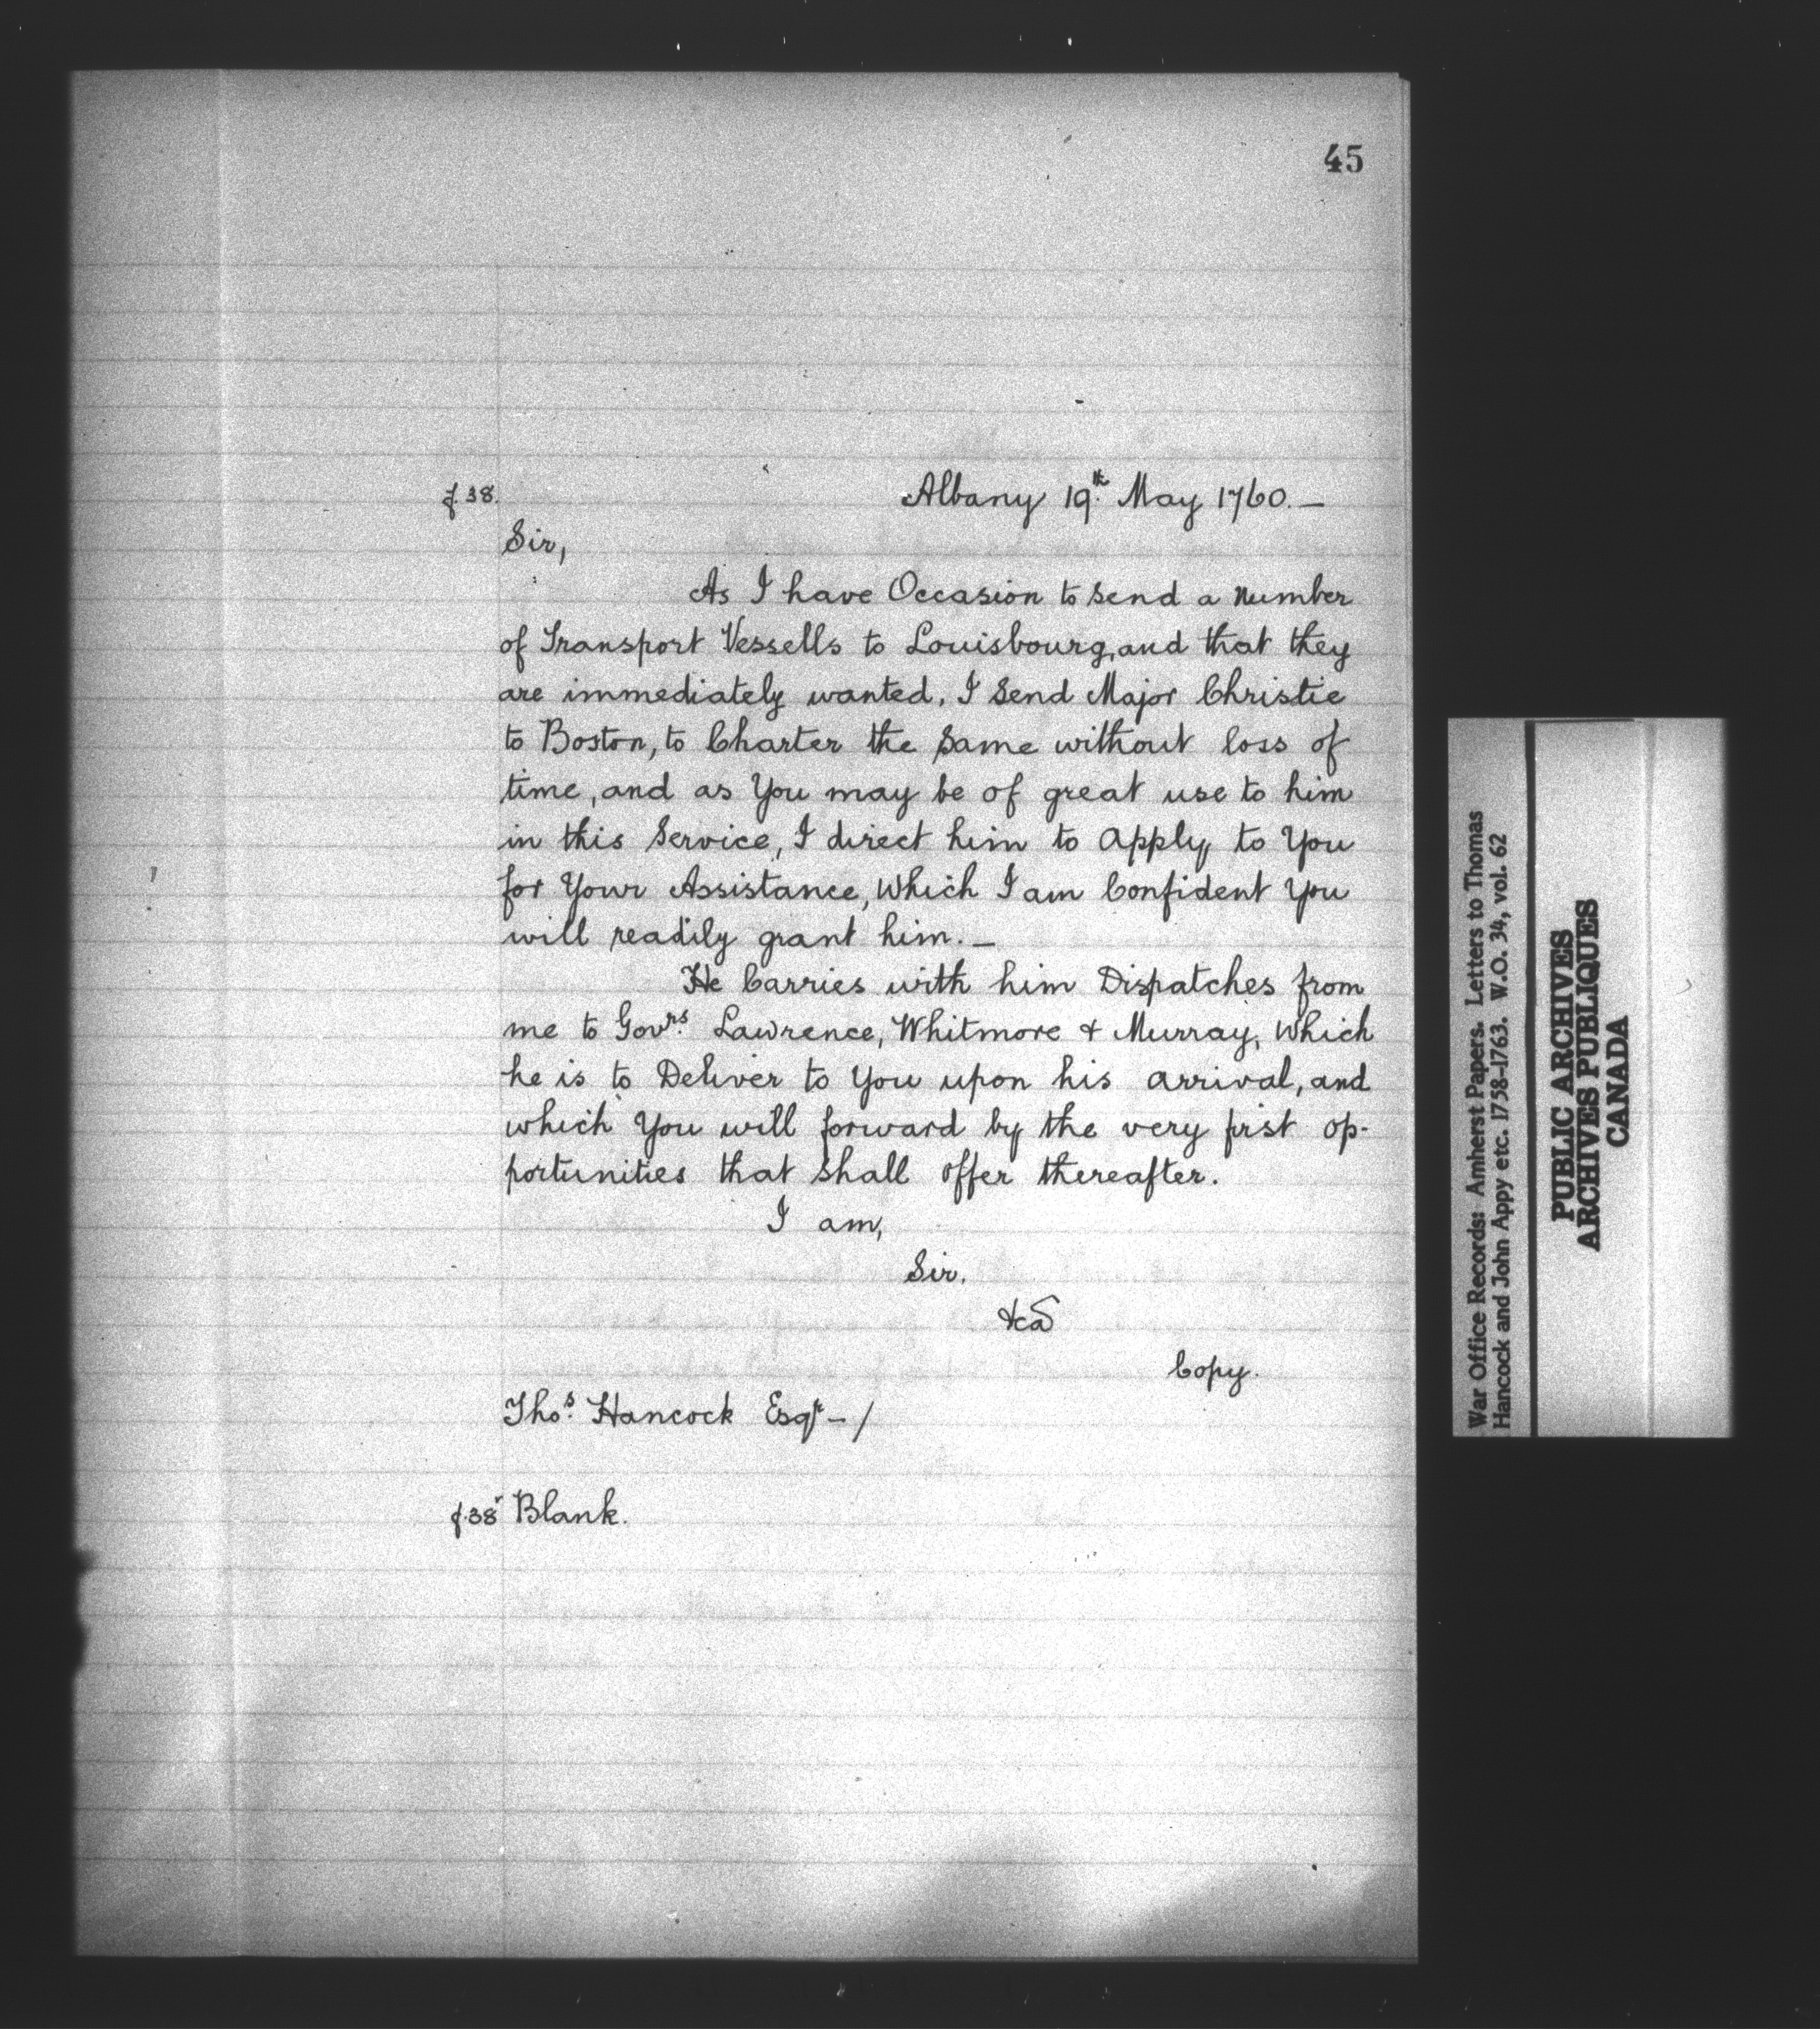 45
f. 38.
Albany 19th. May 1760. —
Sir,
As I have Occasion to Send a Number
of Transport Vessells to Louisbourg, and that they
are immediately wanted, I Send Major Christie
to Boston, to Charter the Same without loss of
time, and as You may be of great use to him
in this Service, I direct him to Apply to You
for Your Assistance, Which I am Confident You
will readily grant him. —
He Carries with him Dispatches from
me to Govrs. Lawrence, Whitmore & Murray, Which
he is to Deliver to You upon his arrival, and
which You will forward by the very first op-
portunities that Shall offer thereafter.
I am,
Sir.
&ca
Copy.
Thos. Hancock Esqr — /
f. 38v Blank.
War Office Records: Amherst Papers. Letters to Thomas
Hancock and John Appy etc. 1758-1763. W.O. 34, vol. 62
PUBLIC ARCHIVES
ARCHIVES PUBLIQUES
CANADA